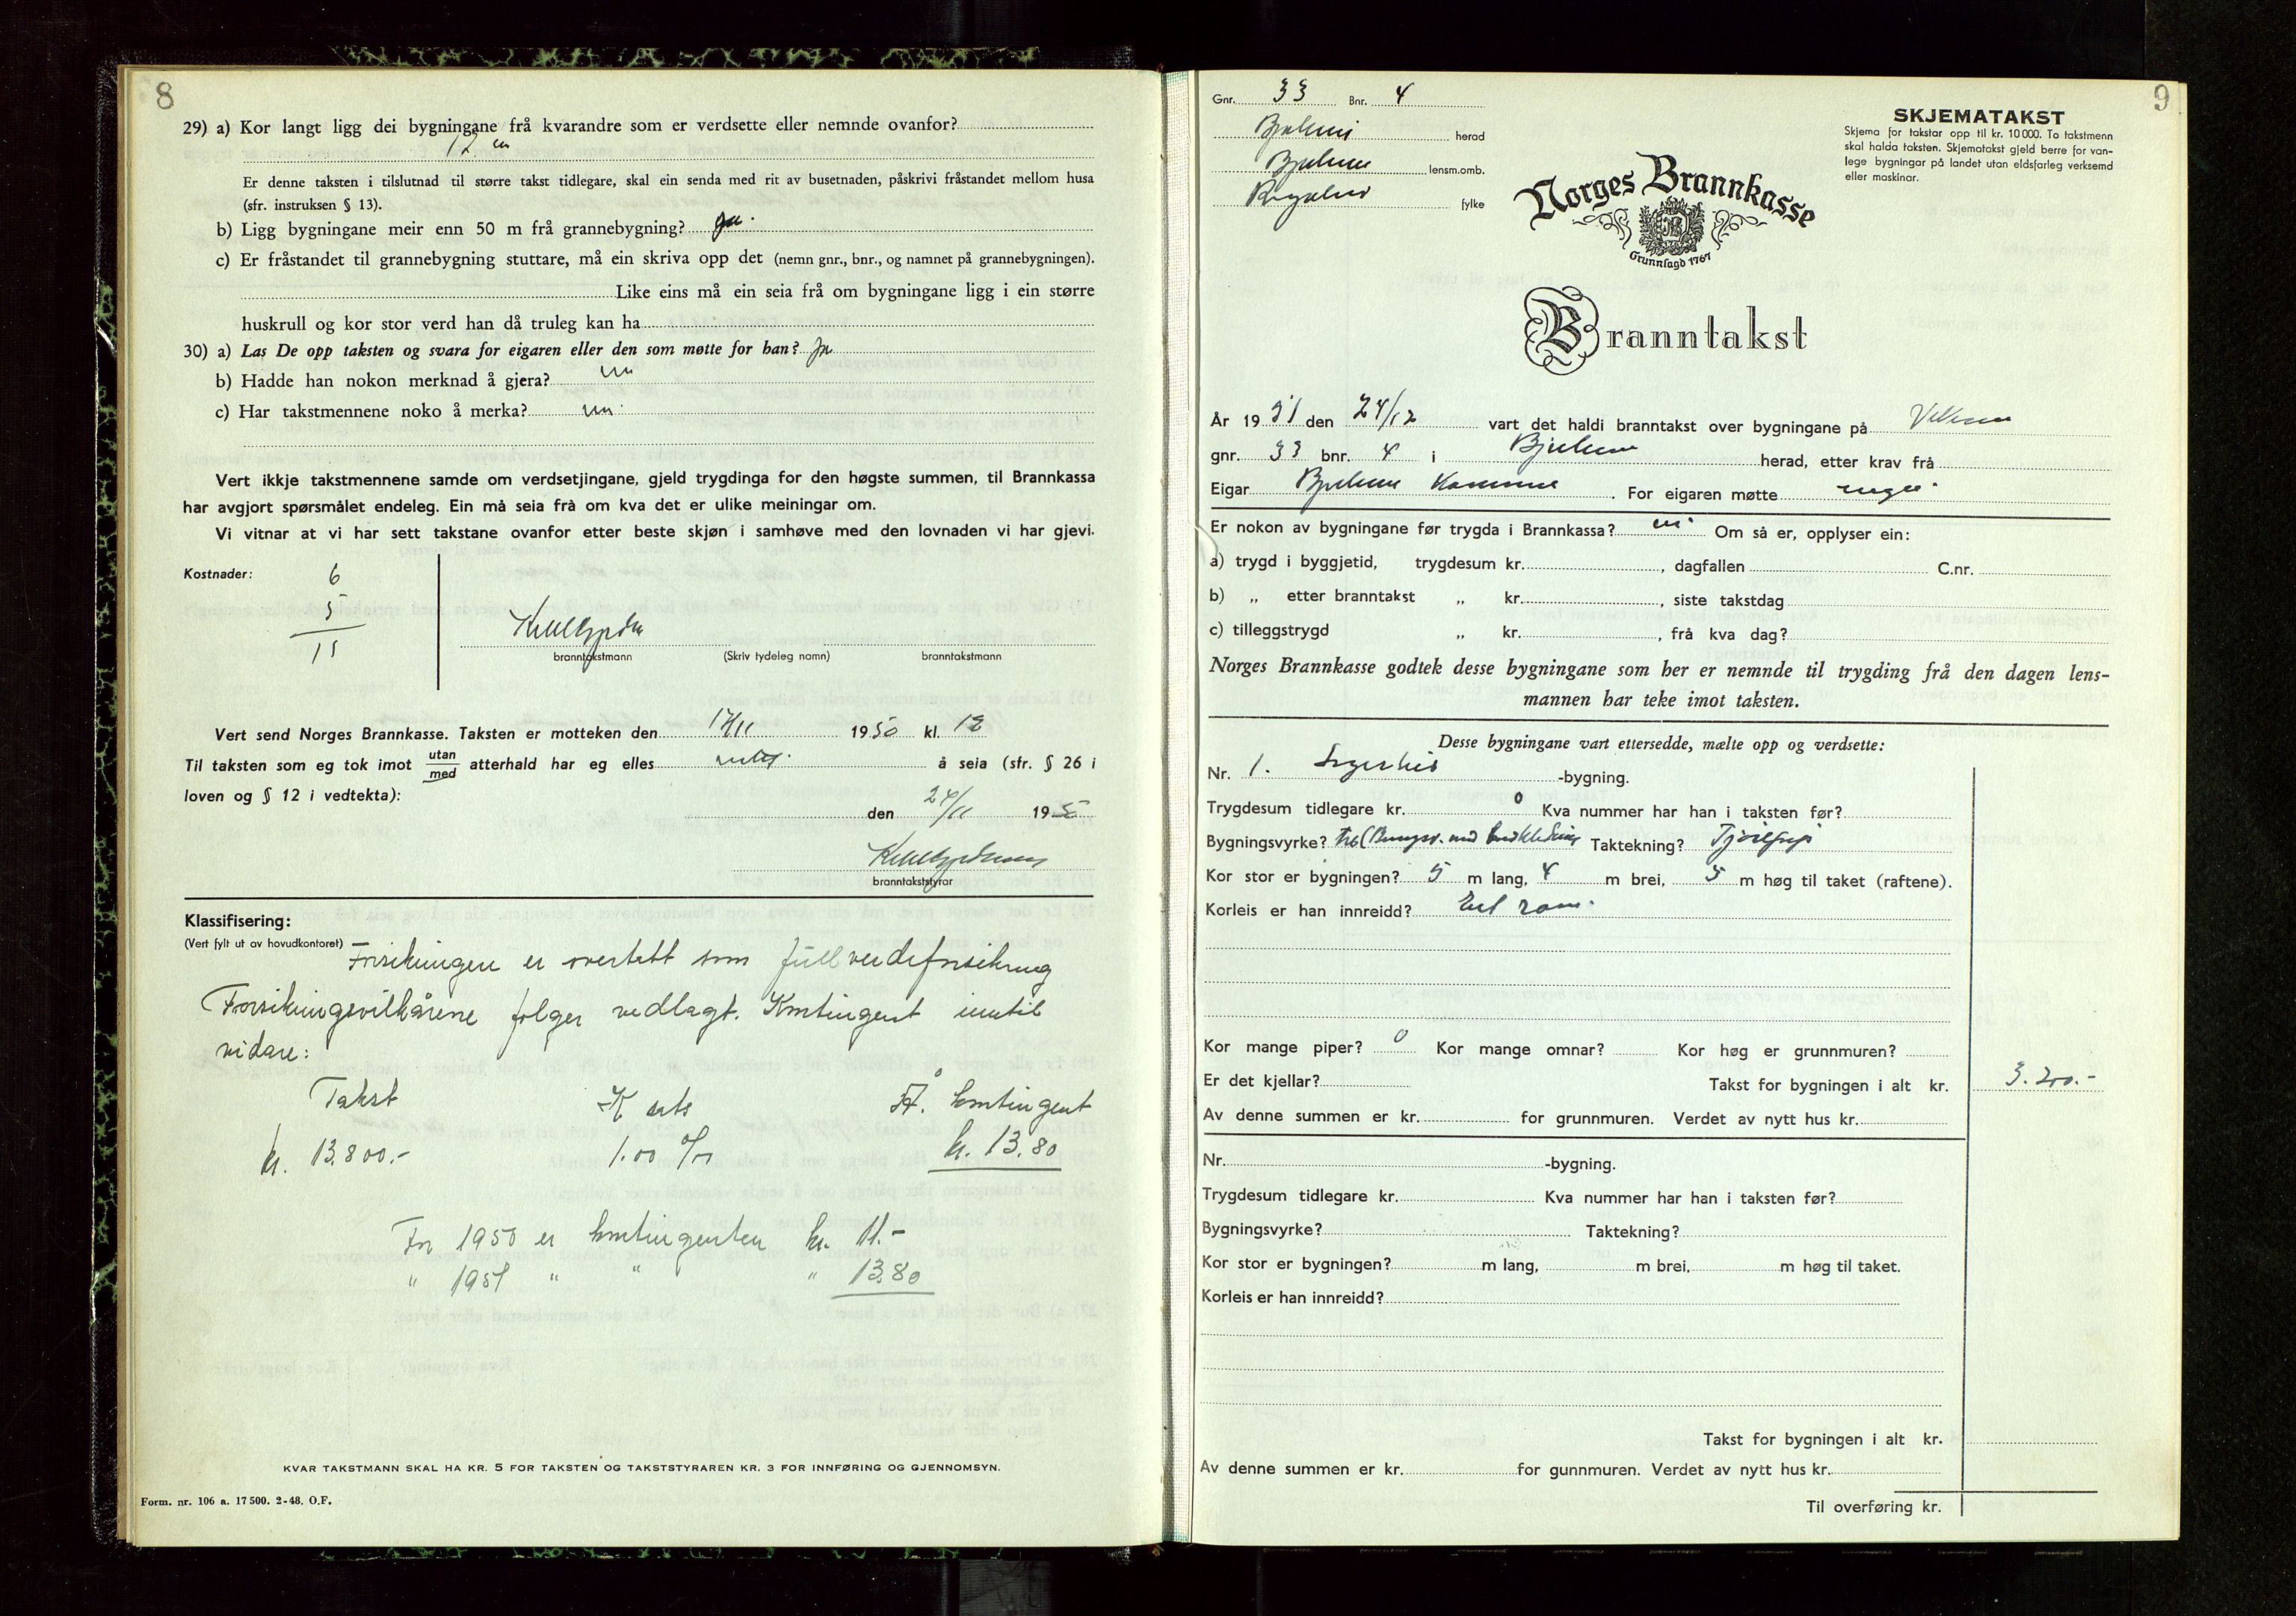 8
29) a) Kor langt ligg dei bygningane frå kvarandre som er verdsette eller nemnde ovanfor?
12 m
Er denne taksten i tilslutnad til større takst tidlegare, skal ein senda med rit av busetnaden, påskrivi fråstandet mellom husa
(sfr. instruksen § 13).
b) Ligg bygningane meir enn 50 m frå grannebygning? ja.
c) Er fråstandet til grannebygning stuttare, må ein skriva opp det (nemn gnr., bnr., og namnet på grannebygningen).
Like eins må ein seia frå om bygningane ligg i ein større
huskrull og kor stor verd han då truleg kan ha
30) a) Las De opp taksten og svara for eigaren eller den som møtte for han? Ja
b) Hadde han nokon merknad å gjera?
c) Har takstmennene noko å merka?
Vert ikkje takstmennene samde om verdsetjingane, gjeld trygdinga for den høgste summen, til Brannkassa
har avgjort spørsmålet endeleg. Ein må seia frå om kva det er ulike meiningar om.
Vi vitnar at vi har sett takstane ovanfor etter beste skjøn i samhøve med den lovnaden vi har gjevi.
Kostnader: 6
5
11
branntakstmann (Skriv tydeleg namn) branntakstmann
Vert send Norges Brannkasse. Taksten er motteken den 17/11 1950 kl. 12
Til taksten som eg tok imot utan/med atterhald har eg elles å seia (sfr. § 26 i
loven og § 12 i vedtekta):
den 24/11 1950
branntakststyrar
Klassifisering:
(Vert fylt ut av hovudkontoret) Forsikringen er overtatt som fullverdiforsikring
Forsikringsvilkårene følger vedlagt. Kontingent inntil
vidare:
Takst K sats År. kontingent
kr. 13.800.- 1.00 o/oo kr. 13.80
For 1950 er kontingenten kr. 11.-
" 1951 " " " 13.80
KVAR TAKSTMANN SKAL HA KR. 5 FOR TAKSTEN OG TAKSTSTYRAREN KR. 3 FOR INNFØRING OG GJENNOMSYN.
Form. nr. 106 a. 17500. 2-48. O.F.
9
Gnr. 33 Bnr. 4
herad
lensm.omb.
Rogaland fylke
SKJEMATAKST
Skjema for takstar opp til kr. 10 000. To takstmenn
skal halda taksten. Skjematakst gjeld berre for van-
lege bygningar på landet utan eldsfarleg verksemd
eller maskinar.
Norges Brannkasse
Grunnlagd 1767
Branntakst
År 1951 den 24/12 vart det haldi branntakst over bygningane på
gnr. 33 bnr. 4 i herad, etter krav frå
Eigar Kommune. For eigaren møtte ingen.
Er nokon av bygningane før trygda i Brannkassa? Om så er, opplyser ein:
a) trygd i byggjetid, trygdesum kr. , dagfallen C.nr.
b) „ etter branntakst „ kr. , siste takstdag
c) tilleggstrygd „ kr. , frå kva dag?
Norges Brannkasse godtek desse bygningane som her er nemnde til trygding frå den dagen lens-
mannen har teke imot taksten.
Desse bygningane vart ettersedde, mælte opp og verdsette:
Nr. 1. -bygning.
Trygdesum tidlegare kr. 0 Kva nummer har han i taksten før?
Bygningsvyrke? Taktekning?
Kor stor er bygningen? 5 m lang, 4 m brei, 5 m høg til taket (raftene).
Korleis er han innreidd? Eit rom.
Kor mange piper? 0 Kor mange omnar? Kor høg er grunnmuren?
Er det kjellar? Takst for bygningen i alt kr. 3.200.-
Av denne summen er kr. for grunnmuren. Verdet av nytt hus kr.
Nr. -bygning.
Trygdesum tidlegare kr. Kva nummer har han i taksten før?
Bygningsvyrke? Taktekning?
Kor stor er bygningen? m lang, m brei, m høg til taket.
Korleis er han innreidd?
Takst for bygningen i alt kr.
Av denne summen er kr. for gunnmuren. Verdet av nytt hus kr.
Til overføring kr.